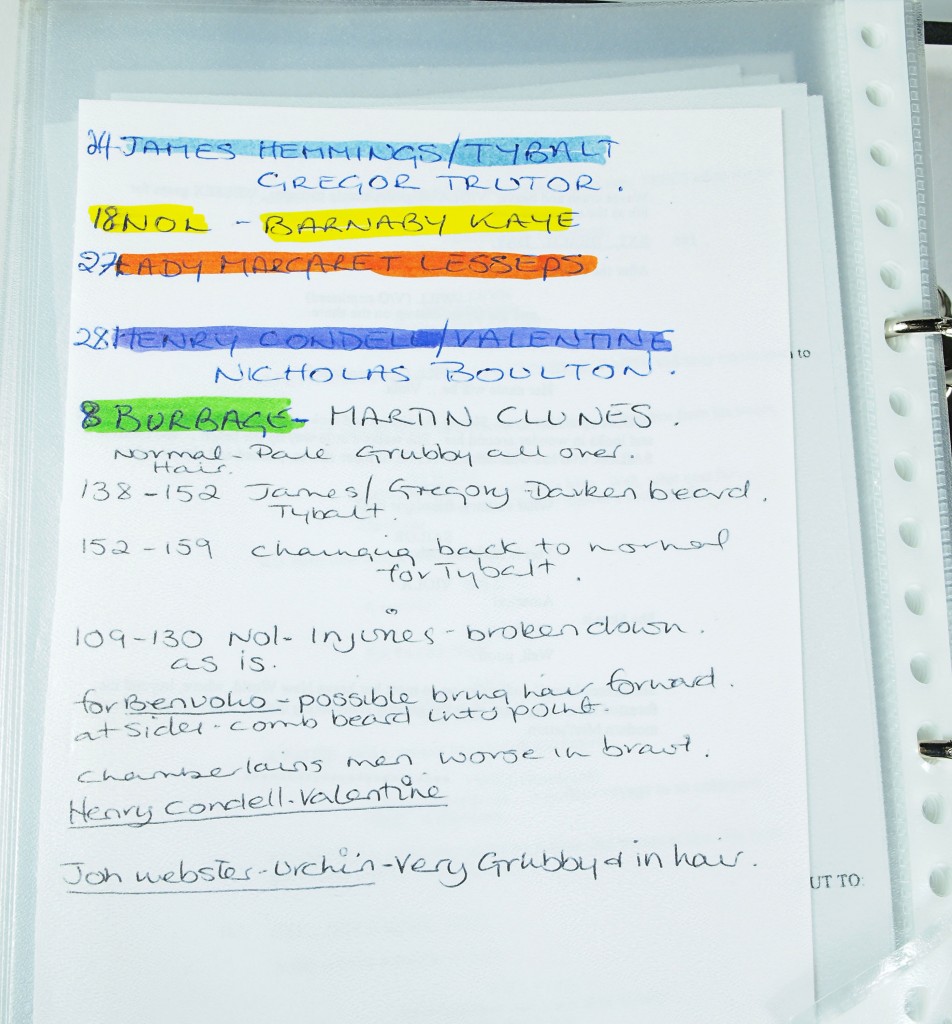 24 JAMES HEMMINGS/TYBALT
GREGOR TRUTOR.
18 NOL - BARNABY KAYE
27 LADY MARGARET LESSEPS
28 HENRY CONDELL/VALENTINE
NICHOLAS BOULTON.
8 BURBAGE - MARTIN CLUNES.
Normal - Pale Grubby all over.
Hair.
138-152 James/ Gregory - Darken beard.
Tybalt.
152-159 changing back to normal
for Tybalt.
109-130 Nol - Injuries - broken down.
as is.
for Benvolio - possible bring hair forward.
at sides - comb beard into point.
Chamberlains men worse in braut.
Henry Condell. Valentine
Joh Webster - Urchin - Very Grubby & in hair.
to
UT TO: